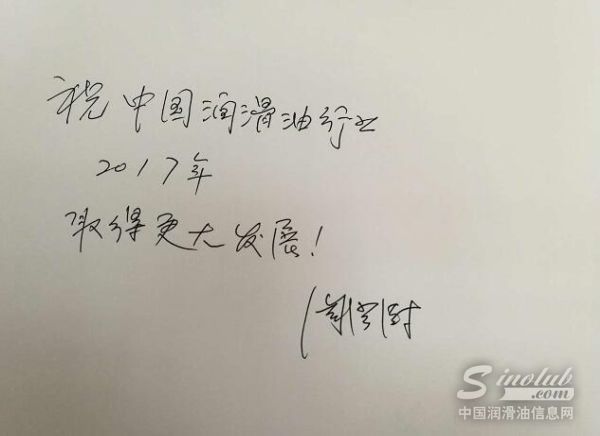 祝中国润滑油行业
2017年
取得更大发展!
Sinolub
.com
中国润滑油信息网